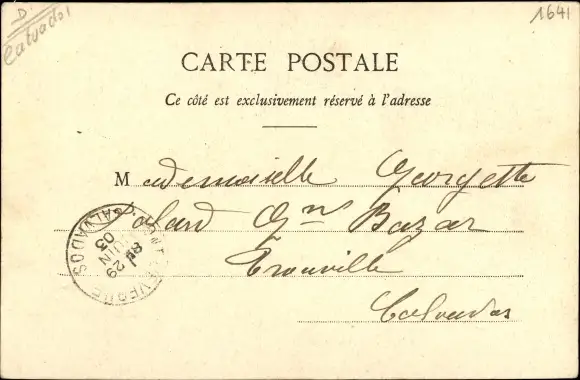 D.
Calvados
1641
CARTE POSTALE
Ce côté est exclusivement réservé à l'adresse
Mademoiselle Georgette
Gd Bazar
Trouville
Calvados
CALVADOS
8E
29
JUIN
03